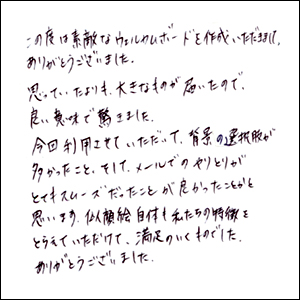 この度は素敵なウェルカムボードを作成いただきまして、
ありがとうございました。
思っていたよりも、大きなものが届いたので、
良い意味で驚きました。
今回利用させていただいて、背景の選択肢が
多かったこと、そして、メールでのやりとりが
とてもスムーズだったことが良かったことかと
思います。似顔絵自体も私たちの特徴を
とらえていただけて、満足のいくものでした。
ありがとうございました。